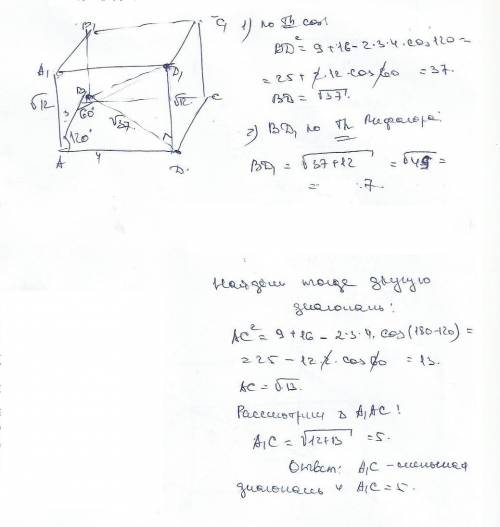 B₁
C₁
A₁
D₁
√12
B
3
60°
√12
C
√37
120°
A
4
D
1) по Th cos:
BD² = 9+16-2·3·4·cos120 =
= 25+2·12·cos60 = 37.
BD = √37.
2) BD₁ по Th Пифагора:
BD₁ = √37+12 = √49 =
= 7.
Найдем тогда другую
диагональ:
AC² = 9+16-2·3·4·cos(180-120) =
= 25-12·2·cos60 = 13.
AC = √13.
Рассмотрим Δ A₁AC!
A₁C = √12+13 = 5.
Ответ: A₁C - меньшая
диагональ и A₁C = 5.